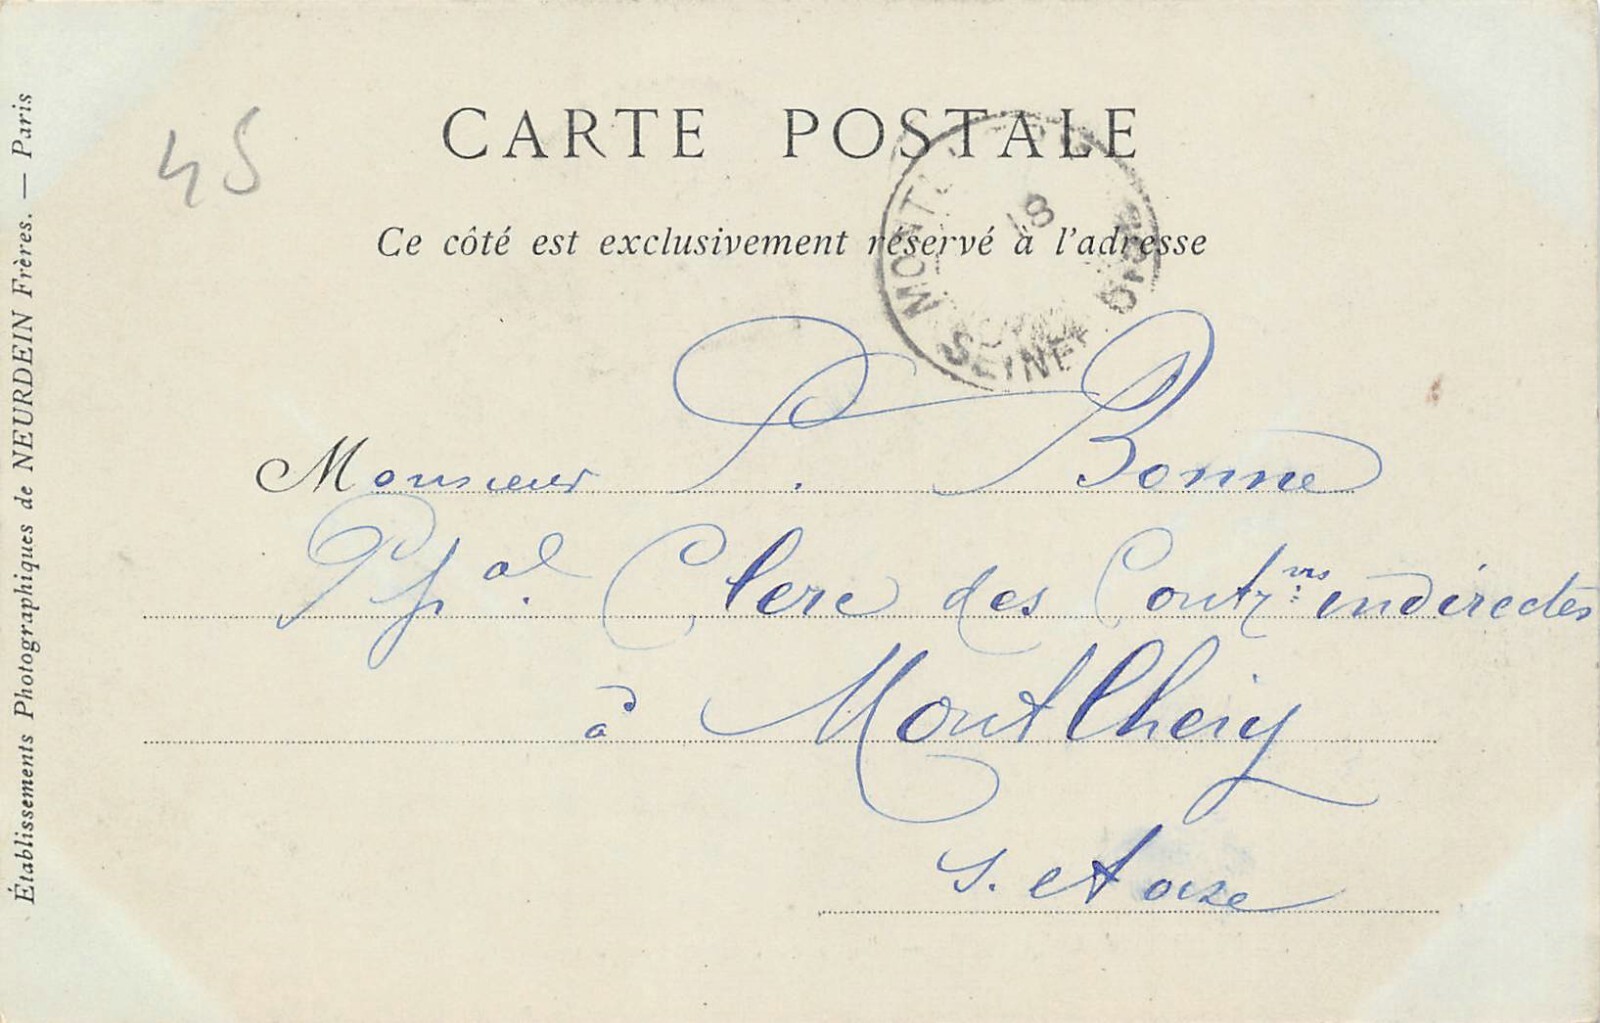 CARTE POSTALE
Ce côté est exclusivement réservé à l'adresse
18
SEINE
Monsieur P. Bonne
Ppal. Clerc des Contr.ons indirectes
à Montlhéry
S. et Oise
45
Établissements Photographiques de NEURDEIN Frères. — Paris